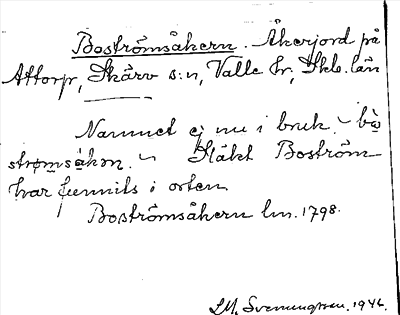 Boströmsåkern. Åkerjord på
Attorp, Skärv s:n, Valle hr, Skb. län
Namnet ej nu i bruk. ~ bo
strømsåkøn. ~ Släkt Boström
har funnits i orten.
Boströmsåkern lm. 1798.
I.M. Svenungsson. 1946.